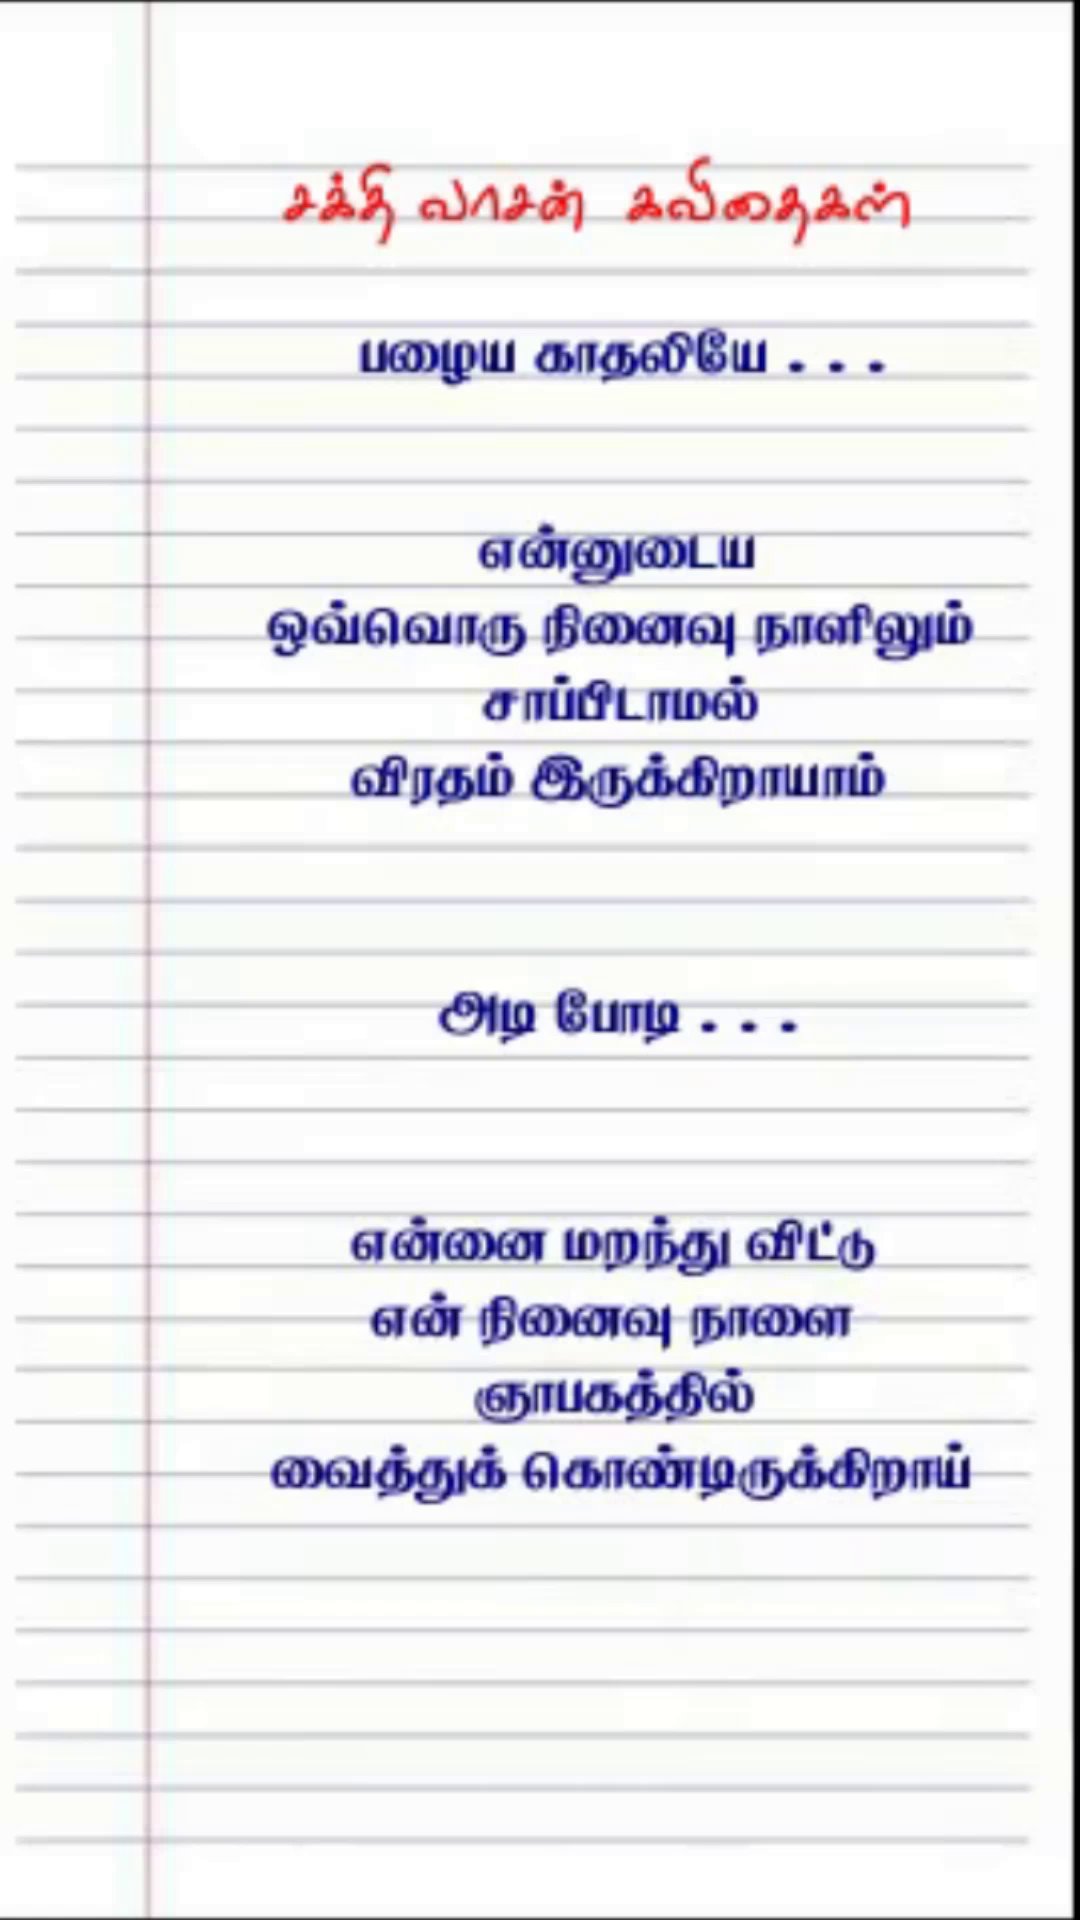 சக்தி வாசன் கவிதைகள்
பழைய காதலியே . . .
என்னுடைய
ஒவ்வொரு நினைவு நாளிலும்
சாப்பிடாமல்
விரதம் இருக்கிறாயாம்
அடி போடி . . .
என்னை மறந்து விட்டு
என் நினைவு நாளை
ஞாபகத்தில்
வைத்துக் கொண்டிருக்கிறாய்